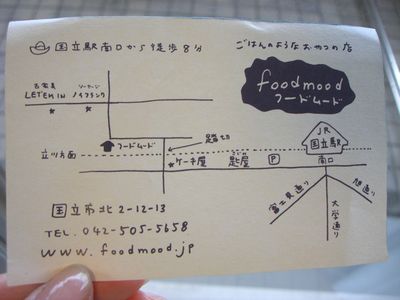 国立駅南口から徒歩8分
ごはんのようなおやつの店
foodmood
フードムード
古家具
LET'EM IN
ノイフランク
JR
国立駅
踏切
フードムード
立川方面
ケーキ屋
匙屋
P
南口
富士見通り
大学通り
旭通り
国立市北2-12-13
TEL. 042-505-5658
www.foodmood.jp